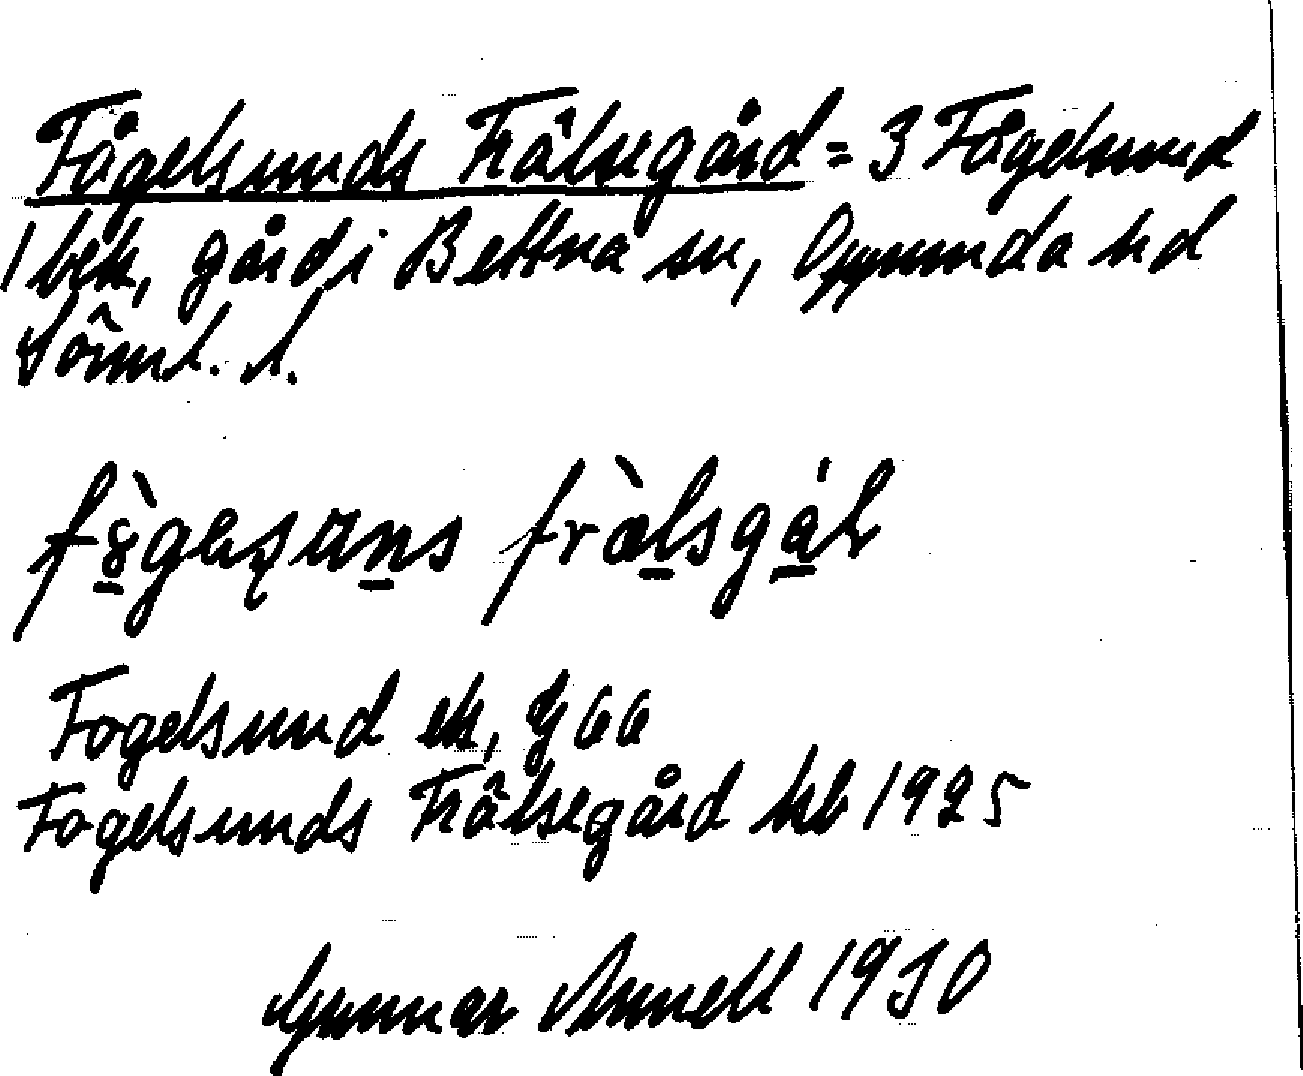 Fågelsunds Frälsegård = 3 Fågelsund
1 bek, gård i Bettna sn, Oppunda hd
Sörml. l.
fògelsuns fràlsgál
Fogelsund ek, J 66
Fogelsunds Frälsegård hb 1925
Gunnar 1930